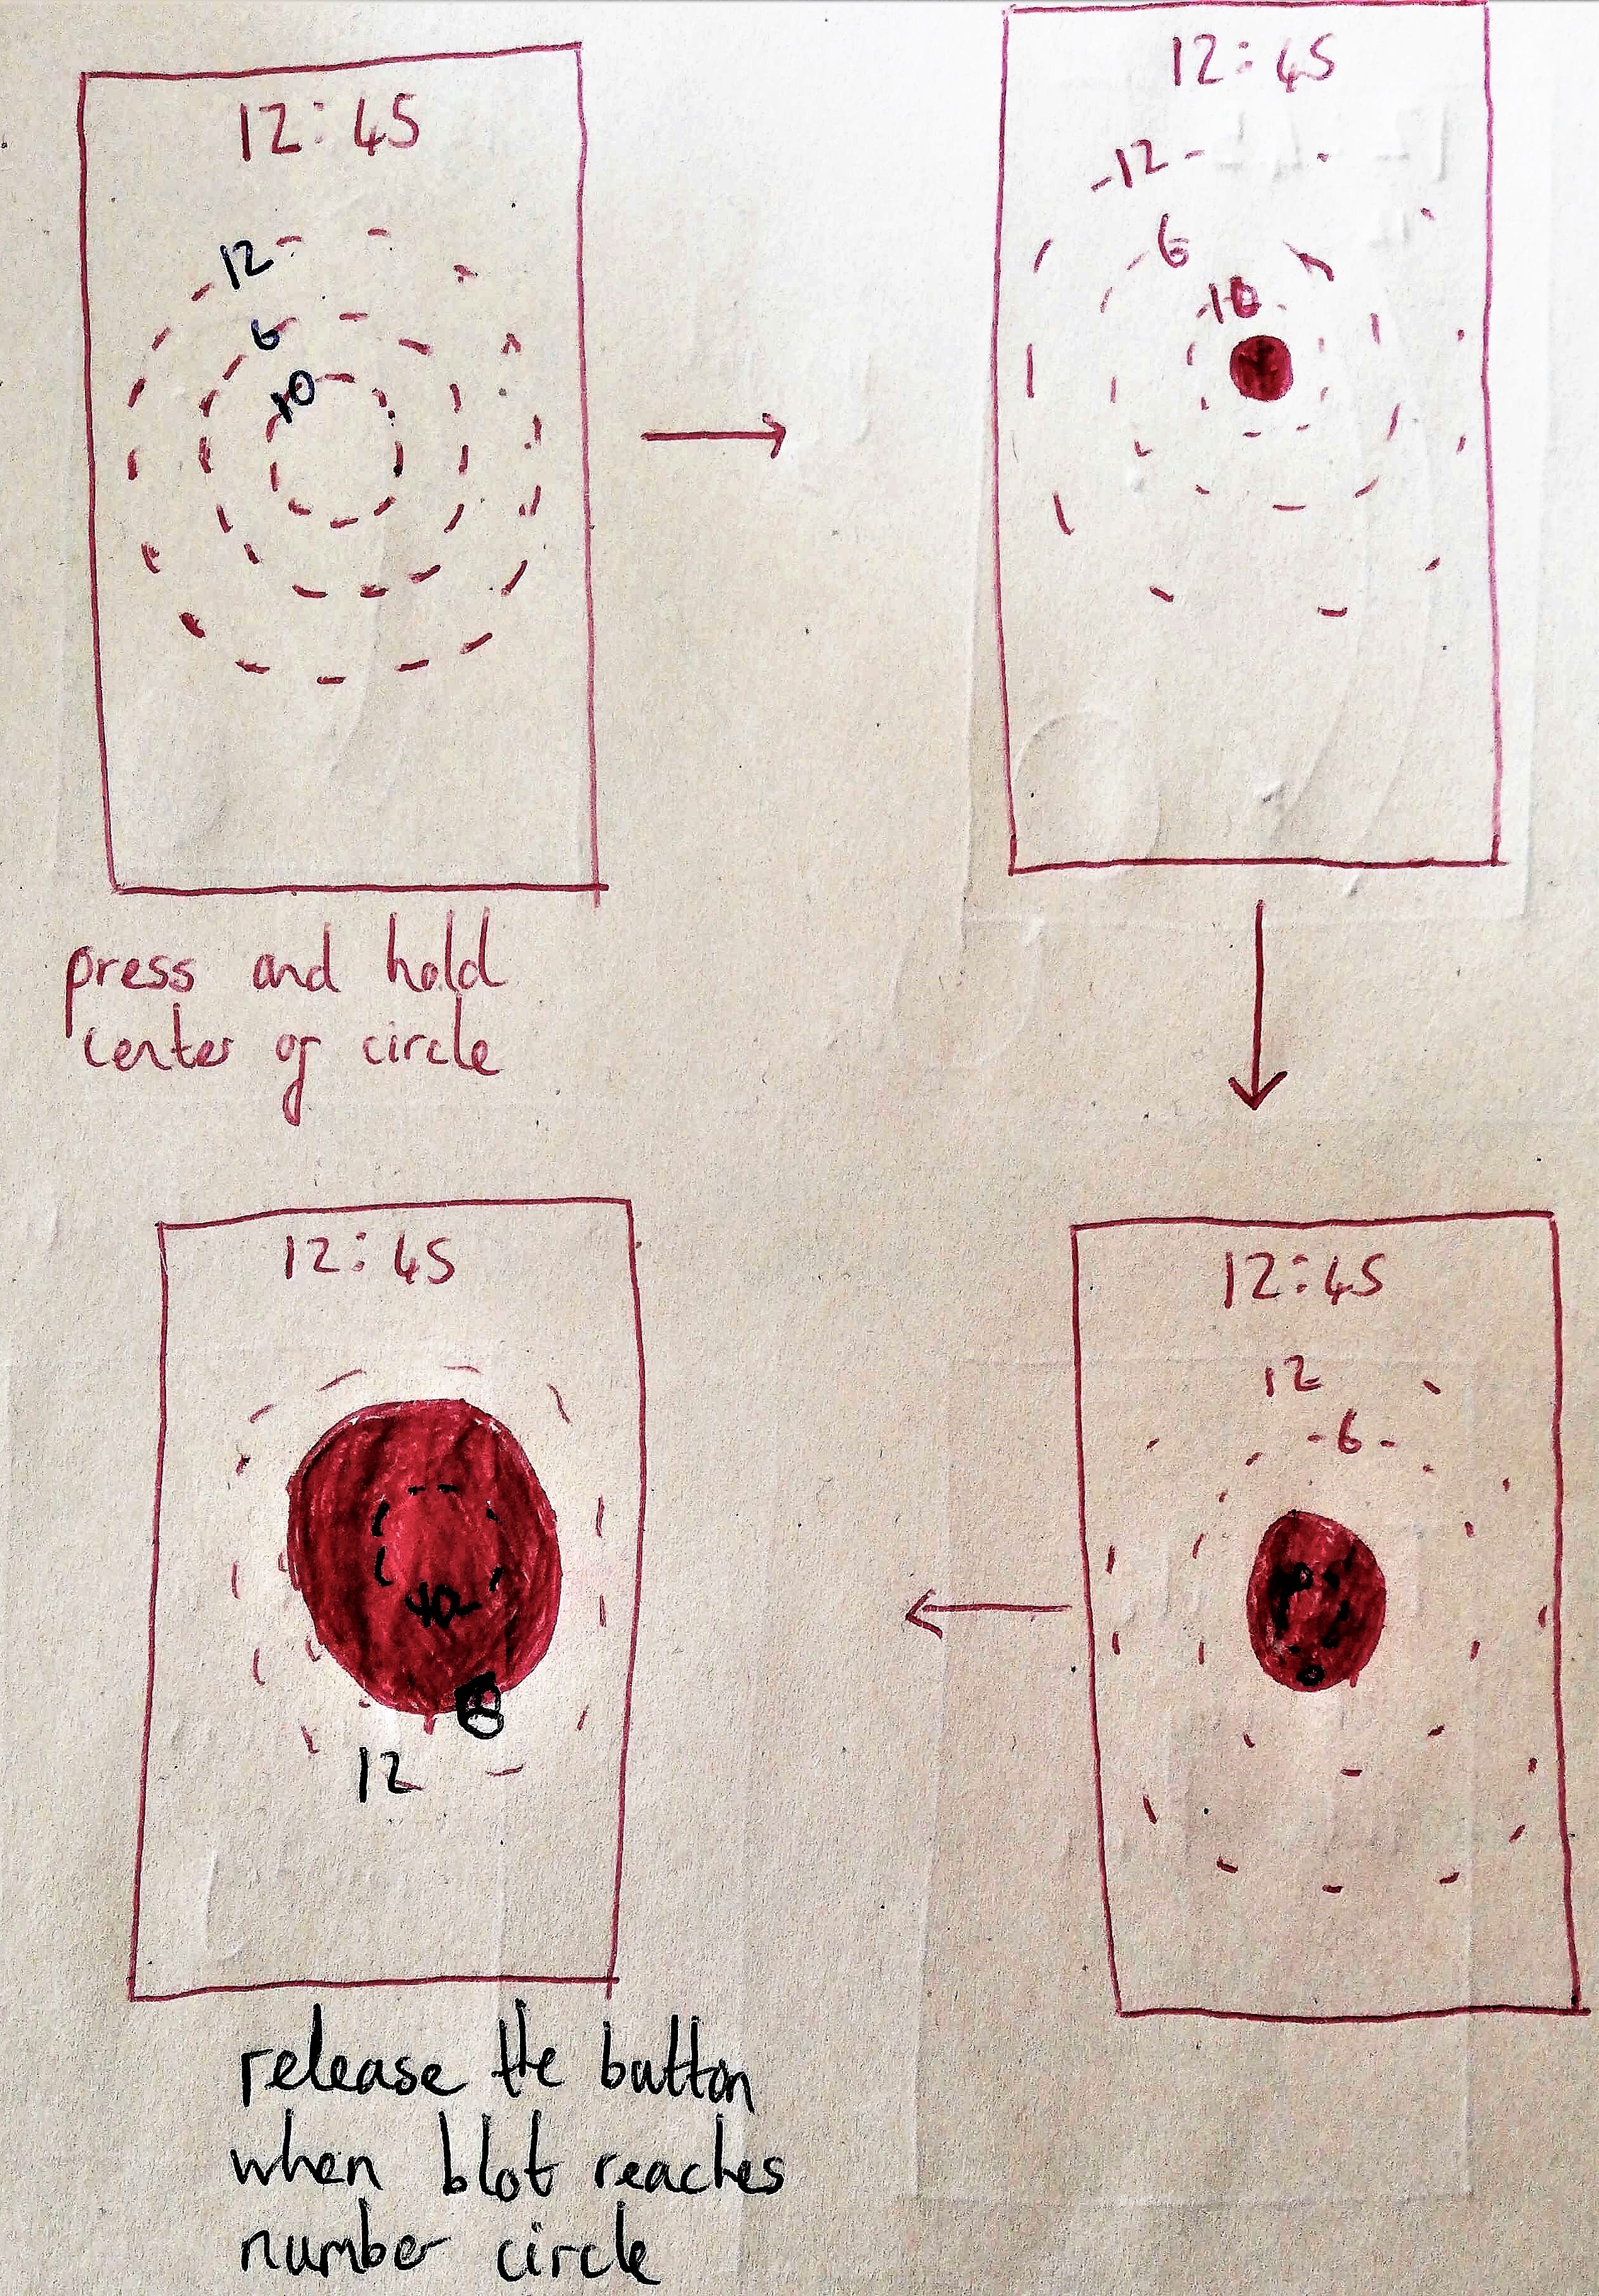 12:45
12
6
10
press and hold
center of circle
12:45
12
6
10
12:45
12
6
12:45
10
12
release the button
when blot reaches
number circle